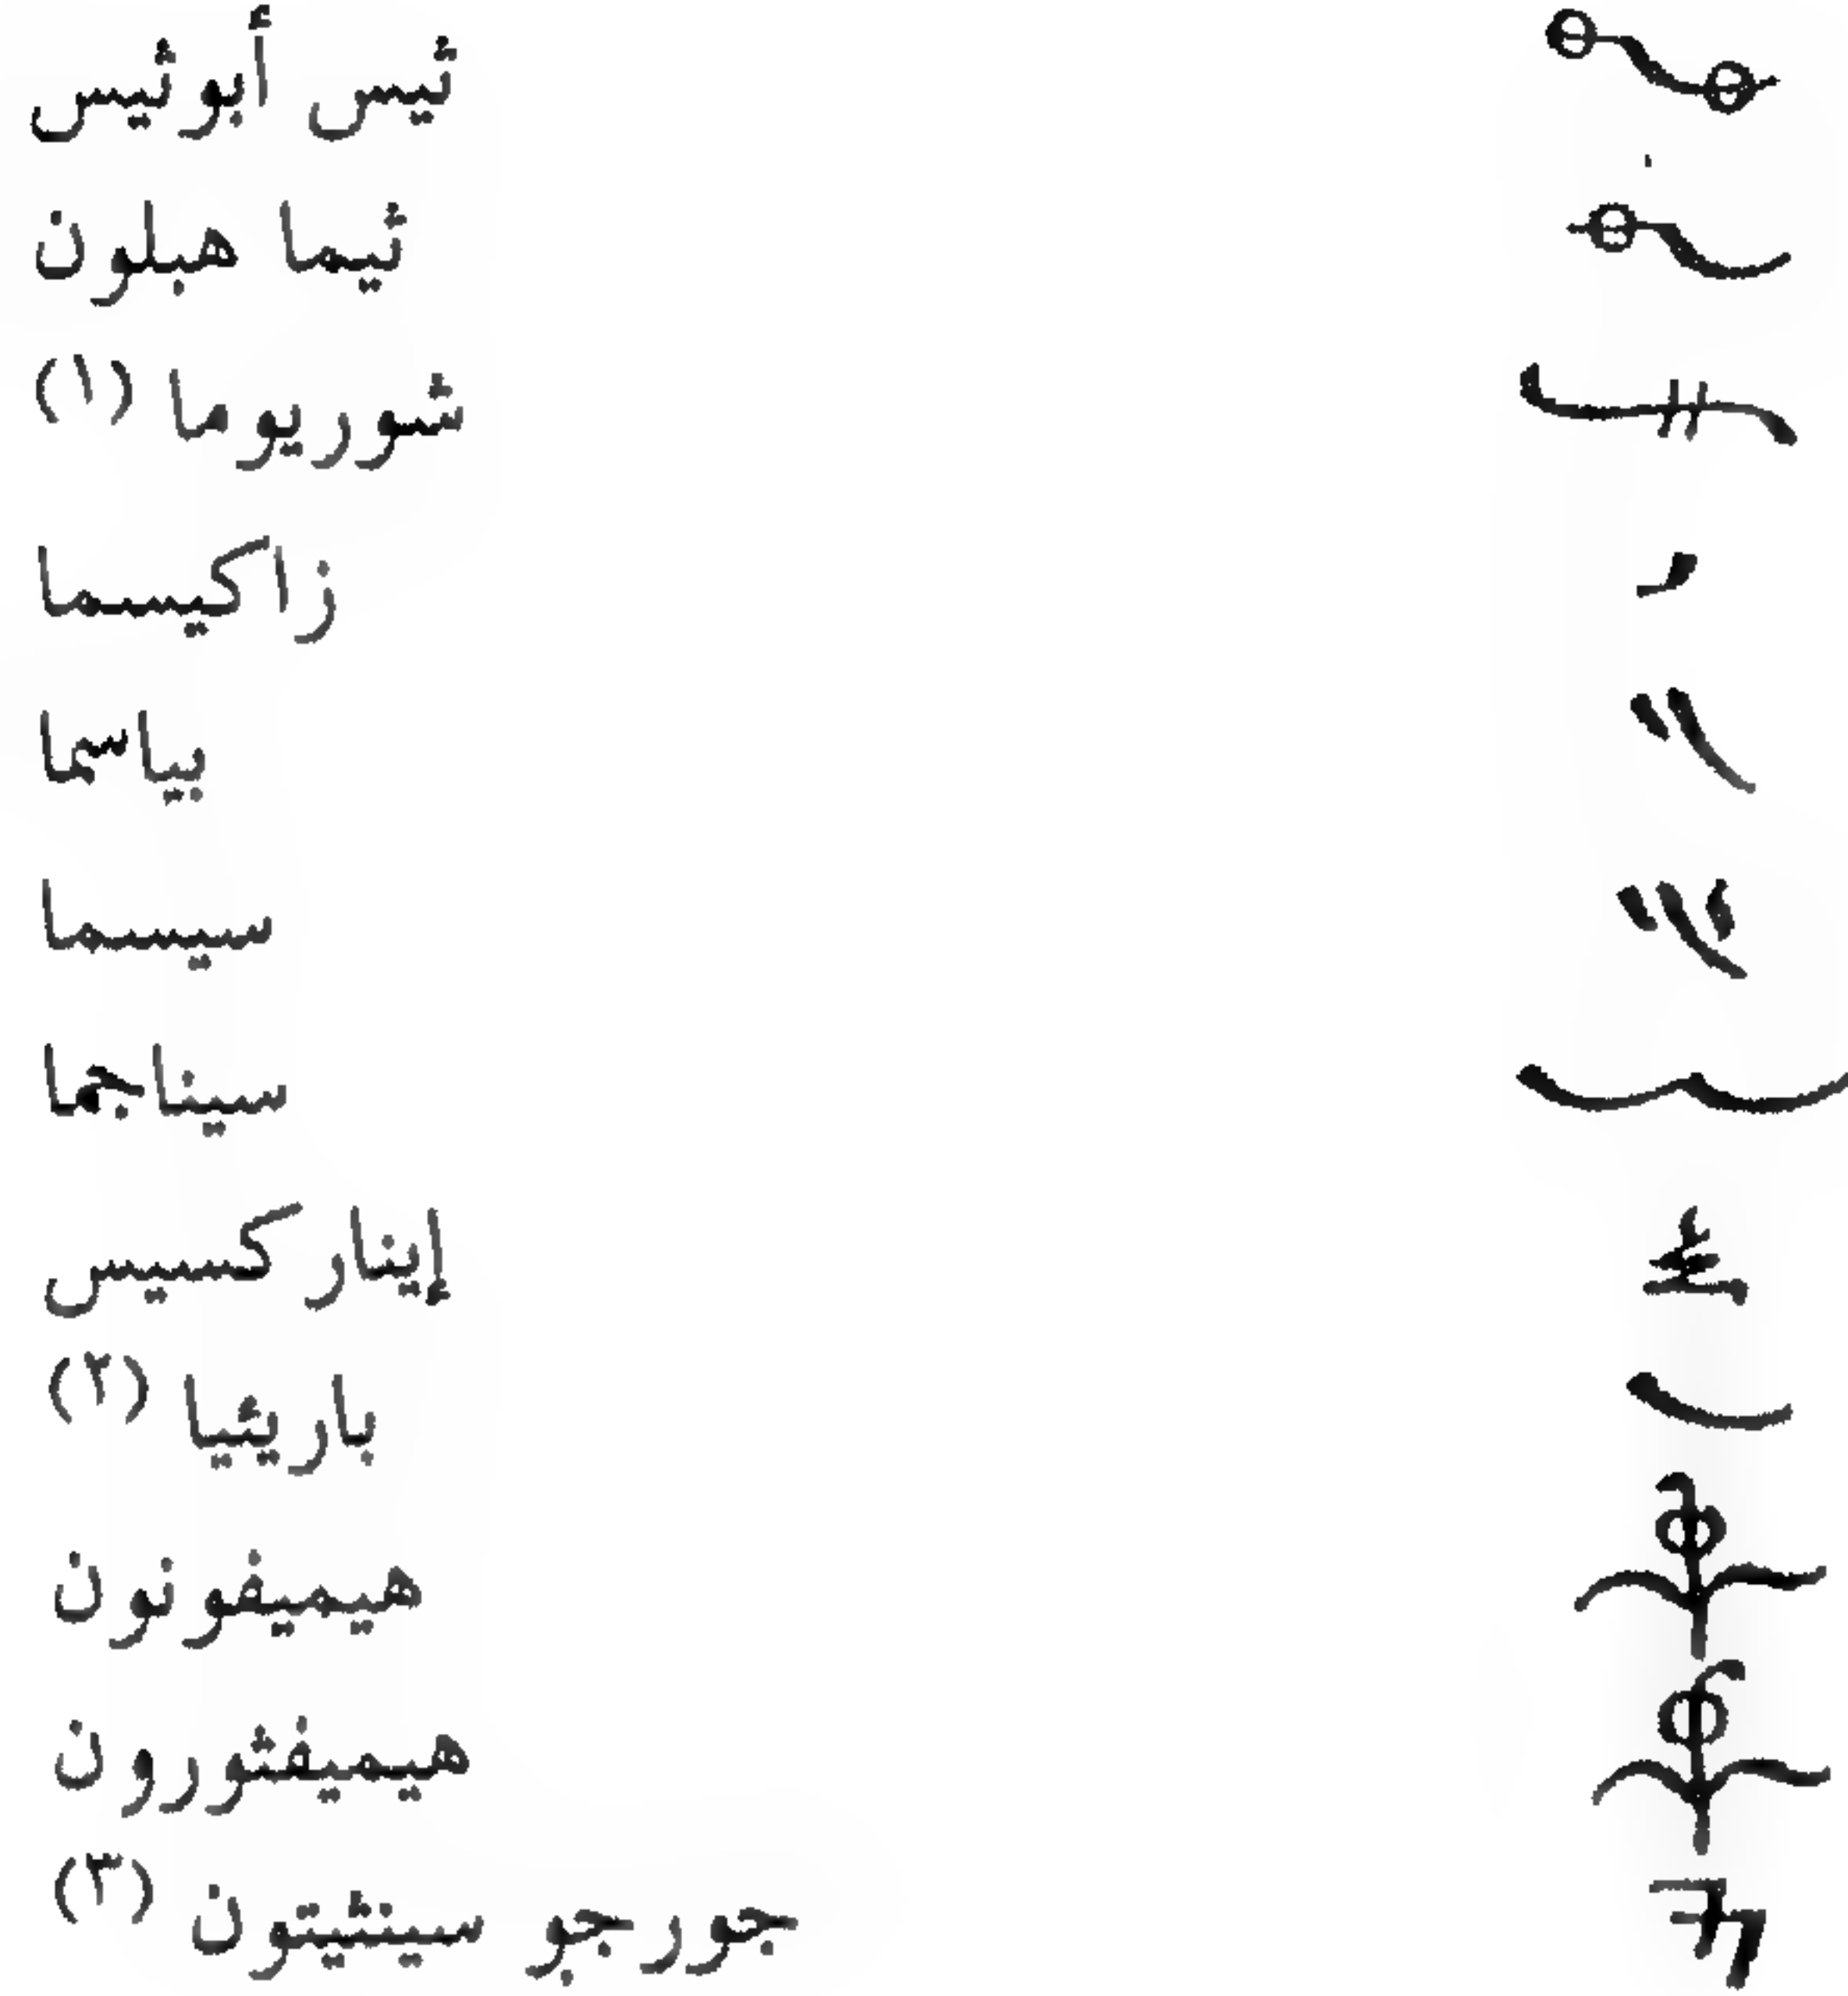 ثيس أبوثيس
ثيما هبلون
شوريوما (١)
زاكيسما
بياسما
سيسما
سيناجما
إينار كسيس
باريثيا (٢)
هيميفونون
هيميفثورون
جورجو سينثيتون (٣)